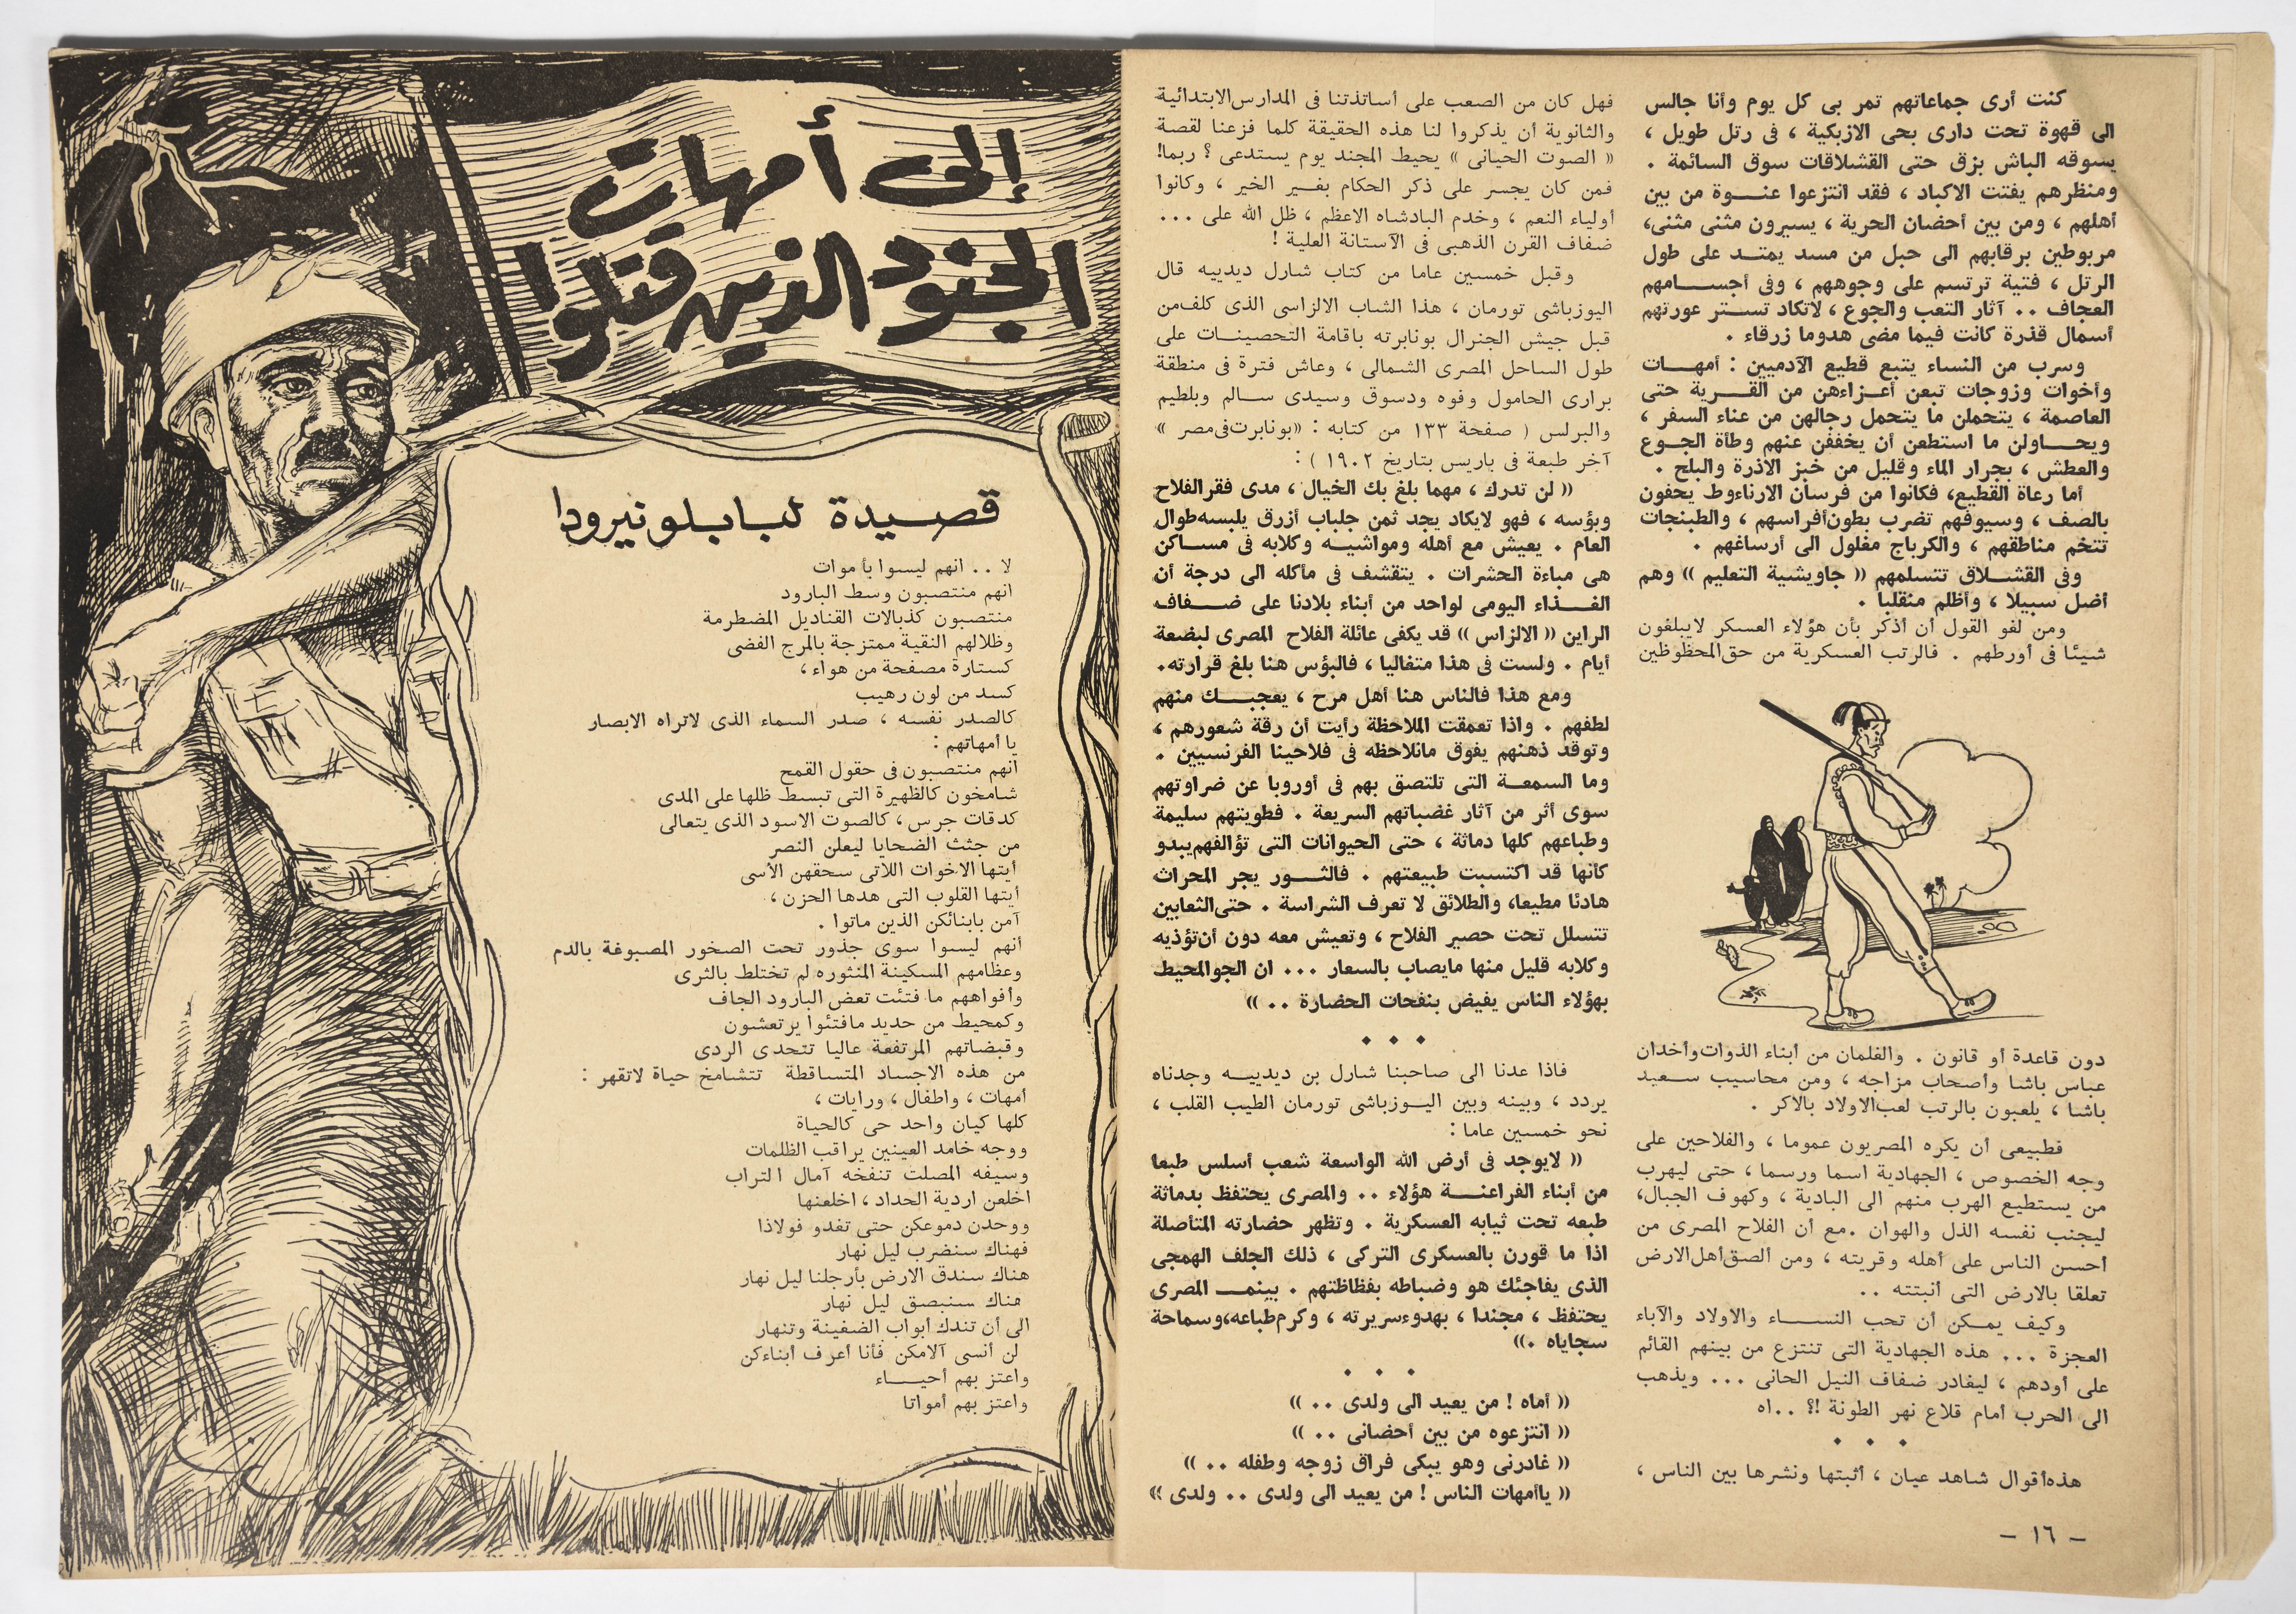 كنت أرى جماعاتهم تمر بى كل يوم وأنا جالس
الى قهوة تحت دارى بحى الازبكية ، فى رتل طويل ،
يسوقه الباش بزق حتى القشلاقات سوق السائمة .
ومنظرهم يفتت الاكباد ، فقد انتزعوا عنـــوة من بين
أهلهم ، ومن بين أحضان الحرية ، يسيرون مثنى مثنى،
مربوطين برقابهم الى حبل من مسد يمتــد على طول
الرتل ، فتية ترتسم على وجوههم ، وفى أجســـامهم
العجاف .. آثار التعب والجوع ، لاتكاد تســتر عورتهم
أسمال قذرة كانت فيما مضى هدوما زرقاء .
وسرب من النساء يتبع قطيع الآدميين : أمهــات
وأخوات وزوجات تبعن أعــزاءهن من القــرية حتى
العاصمة ، يتحملن ما يتحمل رجالهن من عناء السفر ،
ويحـــاولن ما استطعن أن يخففن عنهم وطأة الجــوع
والعطش ، بجرار الماء وقليل من خبز الاذرة والبلح .
أما رعاة القطيع، فكانوا من فرسان الارناءوط يحفون
بالصف ، وسيوفهم تضرب بطون أفراسهم ، والطبنجات
تتخم مناطقهم ، والكرباج مغلول الى أرساغهم .
وفى القشــلاق تتسلمهم « جاويشية التعليم » وهم
أضل سبيلا ، وأظلم منقلبا .
ومن لغو القول أن أذكر بأن هؤلاء العسكر لايبلغون
شيئا فى أورطهم . فالرتب العسكرية من حق المحظوظين
دون قاعدة أو قانون . والغلمان من أبناء الذوات وأخدان
عباس باشا وأصحاب مزاجه ، ومن محاسيب ســعيد
باشا ، يلعبون بالرتب لعب الاولاد بالاكر .
فطبيعى أن يكره المصريون عموما ، والفلاحين على
وجه الخصوص ، الجهادية اسما ورسما ، حتى ليهرب
من يستطيع الهرب منهم الى البادية ، وكهوف الجبال،
ليجنب نفسه الذل والهوان .مع أن الفلاح المصرى من
أحسن الناس على أهله وقريته ، ومن ألصق أهل الارض
تعلقا بالارض التى أنبتته ..
وكيف يمــكن أن تحب النســـاء والاولاد والآباء
العجزة ... هذه الجهادية التى تنتزع من بينهم القائم
على أودهم ، ليغادر ضفاف النيل الحانى ... ويذهب
الى الحرب أمام قلاع نهر الطونة !؟ ..اه
• • •
هذه أقوال شاهد عيان ، أثبتها ونشرها بين الناس ،
– ١٦ –
فهل كان من الصعب على أساتذتنا فى المدارس الابتدائية
والثانوية أن يذكروا لنا هذه الحقيقة كلما فزعنا لقصة
« الصوت الحيانى » يحيط المجند يوم يستدعى ؟ ربما!
فمن كان يجسر على ذكر الحكام بغــير الخير ، وكانوا
أولياء النعم ، وخدم البادشاه الاعظم ، ظل الله على ...
ضفاف القرن الذهبى فى الآستانة العلية !
وقبل خمسين عاما من كتاب شارل ديدييه قال
اليوزباشى تورمان ، هذا الشاب الالزاسى الذى كلف من
قبل جيش الجنرال بونابرته باقامة التحصينــات على
طول الساحل المصرى الشمالى ، وعاش فترة فى منطقة
برارى الحامول وفوه ودسوق وسيدى ســالم وبلطيم
والبرلس ( صفحة ١٣٣ من كتابه : «بونابرت فى مصر »
آخر طبعة فى باريس بتاريخ ١٩٠٢ ) :
« لن تدرك ، مهما بلغ بك الخيال ، مدى فقر الفلاح
وبؤسه ، فهو لايكاد يجد ثمن جلباب أزرق يلبسه طوال
العام . يعيش مع أهله ومواشيــه وكلابه فى مســاكن
هى مباءة الحشرات . يتقشف فى مأكله الى درجة أن
الغـــذاء اليومى لواحد من أبناء بلادنا على ضــفاف
الراين « الالزاس » قد يكفى عائلة الفلاح المصرى لبضعة
أيام . ولست فى هذا متغاليا ، فالبؤس هنا بلغ قرارته.
ومع هذا فالناس هنا أهل مرح ، يعجبــك منهم
لطفهم . واذا تعمقت الملاحظة رأيت أن رقة شعورهم ،
وتوقد ذهنهم يفوق مانلاحظه فى فلاحينا الفرنسيين .
وما السمعــة التى تلتصق بهم فى أوروبا عن ضراوتهم
سوى أثر من آثار غضباتهم السريعة . فطويتهم سليمة
وطباعهم كلها دماثة ، حتى الحيوانات التى تؤالفهم يبدو
كأنها قد اكتسبت طبيعتهم . فالثــور يجر المحراث
هادئا مطيعا، والطلائق لا تعرف الشراسة . حتى الثعابين
تتسلل تحت حصير الفلاح ، وتعيش معه دون أن تؤذيه
وكلابه قليل منها مايصاب بالسعار ... ان الجو المحيط
بهؤلاء الناس يفيض بنفحات الحضارة .. »
• • •
فاذا عدنا الى صاحبنا شارل بن ديدييــه وجدناه
يردد ، وبينه وبين اليــوزباشى تورمان الطيب القلب ،
نحو خمسين عاما :
« لايوجد فى أرض الله الواسعة شعب أسلس طبعا
من أبناء الفراعنــة هؤلاء .. والمصرى يحتفظ بدماثة
طبعه تحت ثيابه العسكرية . وتظهر حضارته المتأصلة
اذا ما قورن بالعسكرى التركى ، ذلك الجلف الهمجى
الذى يفاجئك هو وضباطه بفظاظتهم . بينمــا المصرى
يحتفظ ، مجندا ، بهدوء سريرته ، وكرم طباعه،وسماحة
سجاياه .»
• • •
« أماه ! من يعيد الى ولدى .. »
« انتزعوه من بين أحضانى .. »
« غادرنى وهو يبكى فراق زوجه وطفله .. »
« ياأمهات الناس ! من يعيد الى ولدى .. ولدى »
إلى أمهات
الجنود الذين قتلوا
قصيدة لبابلو نيرودا
لا .. انهم ليسوا بأموات
انهم منتصبون وسط البارود
منتصبون كذبالات القناديل المضطرمة
وظلالهم النقية ممتزجة بالمرج الفضى
كستارة مصفحة من هواء ،
كسد من لون رهيب
كالصدر نفسه ، صدر السماء الذى لاتراه الابصار
يا أمهاتهم :
انهم منتصبون فى حقول القمح
شامخون كالظهيرة التى تبسط ظلها على المدى
كدقات جرس ، كالصوت الاسود الذى يتعالى
من جثث الضحايا ليعلن النصر
أيتها الاخوات اللاتى سحقهن الأسى
أيتها القلوب التى هدها الحزن ،
آمن بابنائكن الذين ماتوا .
انهم ليسوا سوى جذور تحت الصخور المصبوغة بالدم
وعظامهم المسكينة المنثوره لم تختلط بالثرى
وأفواههم ما فتئت تعض البارود الجاف
وكمحيط من حديد مافتئوا يرتعشون
وقبضاتهم المرتفعة عاليا تتحدى الردى
من هذه الاجساد المتساقطة تتشامخ حياة لاتقهر :
أمهات ، واطفال ، ورايات ،
كلها كيان واحد حى كالحياة
ووجه خامد العينين يراقب الظلمات
وسيفه المصلت تنفخه آمال التراب
اخلعن اردية الحداد ، اخلعنها
ووحدن دموعكن حتى تغدو فولاذا
فهناك سنضرب ليل نهار
هناك سندق الارض بأرجلنا ليل نهار
هناك سنبصق ليل نهار
الى أن تندك أبواب الضغينة وتنهار
لن أنسى آلامكن فأنا أعرف أبناءكن
واعتز بهم أحيـــاء
واعتز بهم أمواتا